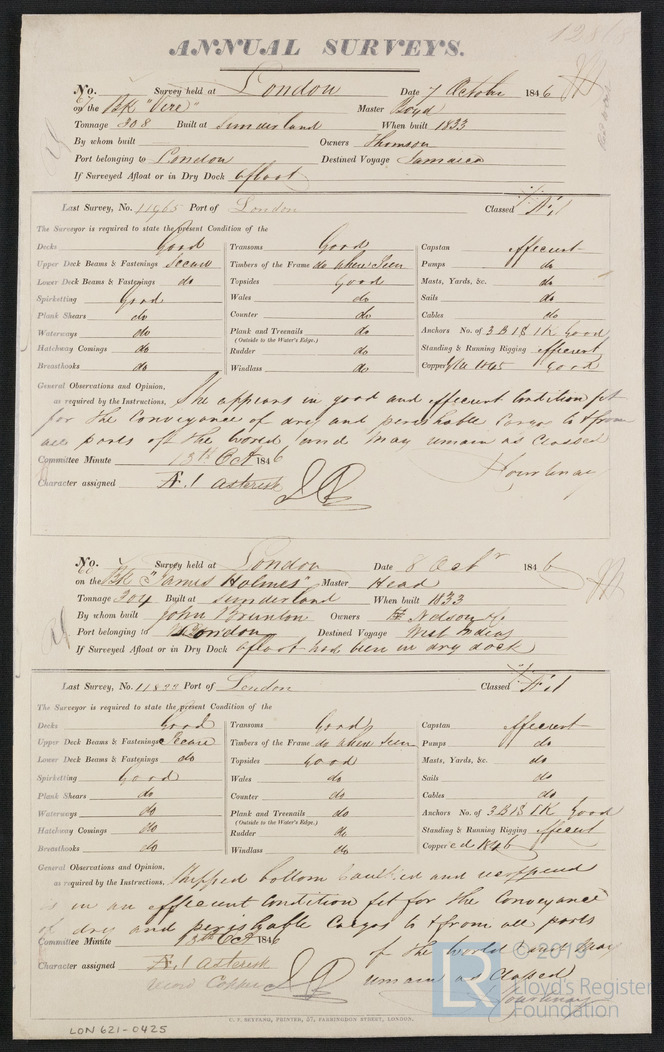 ANNUAL SURVEYS.
No. Survey held at London Date 7 October 1846
on the Bk "Vere" Master Boyd
Tonnage 308 Built at Sunderland When built 1833
By whom built Owners Thomson
Port belonging to London Destined Voyage Jamaica
If Surveyed Afloat or in Dry Dock afloat
Last Survey, No. 11965 Port of London Classed Æ1
The Surveyor is required to state the present Condition of the
Decks Good Transoms Good Capstan efficient
Upper Deck Beams & Fastenings Secure Timbers of the Frame do where seen Pumps do
Lower Deck Beams & Fastenings do Topsides Good Masts, Yards, &c. do
Spirketting Good Wales do Sails do
Plank Shears do Counter do Cables do
Waterways do Plank and Treenails do Anchors No. of 3 B 1 S 1 K Good
(Outside to the Water's Edge.)
Hatchway Comings do Rudder do Standing & Running Rigging efficient
Breasthooks do Windlass do Copper 1845 Good
General Observations and Opinion,
as required by the Instructions, She appears in good and efficient Condition fit
for the Conveyance of dry and perishable Cargo to & from
all parts of the World, and May remain as Classed
Committee Minute 13th Oct 1846
Character assigned Æ.1 Asterisk
Courtenay
No. Survey held at London Date 8 Octr 1846
on the Bk "James Holmes" Master Head
Tonnage 204 Built at Sunderland When built 1833
By whom built John Brunton Owners Nelson & Co
Port belonging to London Destined Voyage West Indies
If Surveyed Afloat or in Dry Dock afloat has been in dry dock
Last Survey, No. 11833 Port of London Classed Æ1
The Surveyor is required to state the present Condition of the
Decks Good Transoms Good Capstan efficient
Upper Deck Beams & Fastenings Secure Timbers of the Frame do where seen Pumps do
Lower Deck Beams & Fastenings do Topsides Good Masts, Yards, &c. do
Spirketting Good Wales do Sails do
Plank Shears do Counter do Cables do
Waterways do Plank and Treenails do Anchors No. of 3 B 1 S 1 K Good
(Outside to the Water's Edge.)
Hatchway Comings do Rudder do Standing & Running Rigging efficient
Breasthooks do Windlass do Coppered 1846
General Observations and Opinion,
as required by the Instructions, Stripped bottom Caulked and recoppered
is in an efficient Condition fit for the Conveyance
of dry and perishable Cargos to & from all parts
of the World and May
remain as Classed
Courtenay
Committee Minute 13th Oct 1846
Character assigned Æ.1 Asterisk
record Copper
LON 621-0425
© 2019
LR
Lloyd's Register
Foundation